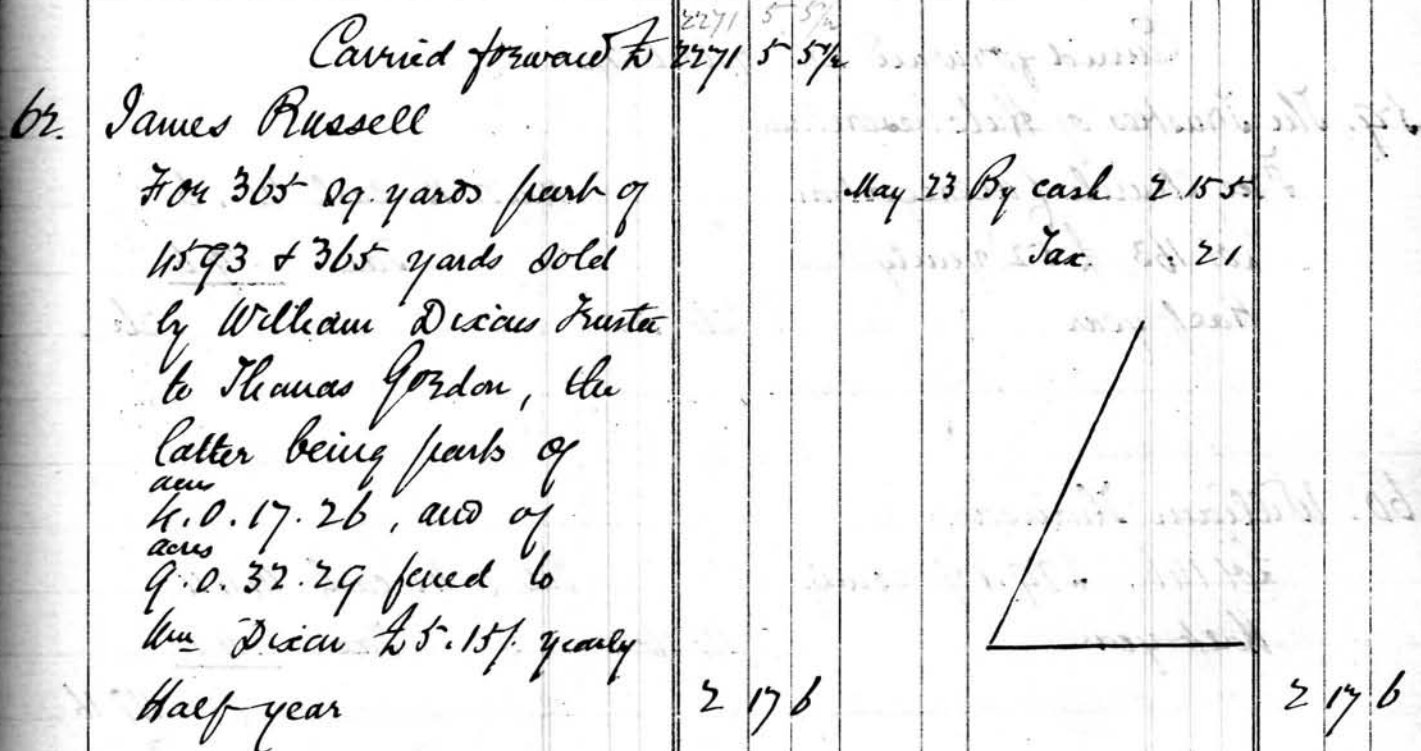 2271 5 5½
Carried forward £ 2271 5 5½
62. James Russell
For 365 sq. yards part of May 23 By cash 2. 15 5
4593 & 365 yards sold Tax . 2 1
by William Dixons Trustee
to Thomas Gordon, the
latter being parts of
acres
4. 0. 17. 26, and of
acres
9. 0. 32. 29 feued to "
Wm Dixon £5. 15/. yearly
Half year 2 17 6 2 17 6